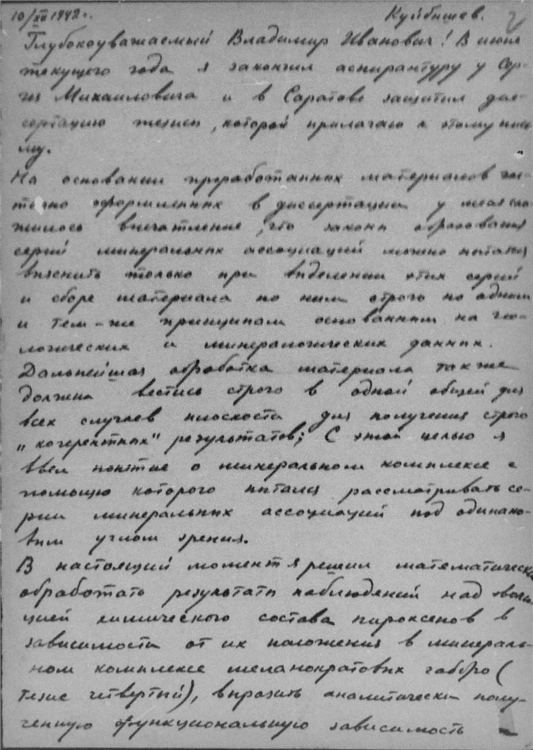 10/XII 1942г. Куйбышев. 2
Глубокоуважаемый Владимир Иванович! В июне
текущего года я закончил аспирантуру у Сер-
гея Михаиловича и в Саратове защитил дис-
сертацию тезисы, которой прилагаю к этому пись-
му.
На основании проработанных материалов час-
тично оформленных в диссертации у меня сло-
жилось впечатление, что законы образования
серий минеральных ассоциаций можно пытаться
выяснить только при выделении этих серий
и сборе материала по ним строго по одним
и тем-же принципам основанным на гео-
логических и минералогических данных.
Дальнейшая обработка материала также
должна вестись строго в одной общей для
всех случаев плоскости для получения строго
„когерентных" результатов; С этой целью я
ввел понятие о минеральном комплексе с
помощью которого пытался рассматривать се-
рии минеральных ассоциаций под одинако-
вым углом зрения.
В настоящий момент я решил математически
обработать результаты наблюдений над эволю-
цией химического состава пироксенов в
зависимости от их положения в минераль-
ном комплексе меланократовых габбро (
тезис четвертый), выразить аналитически полу-
ченную функциональную зависимость